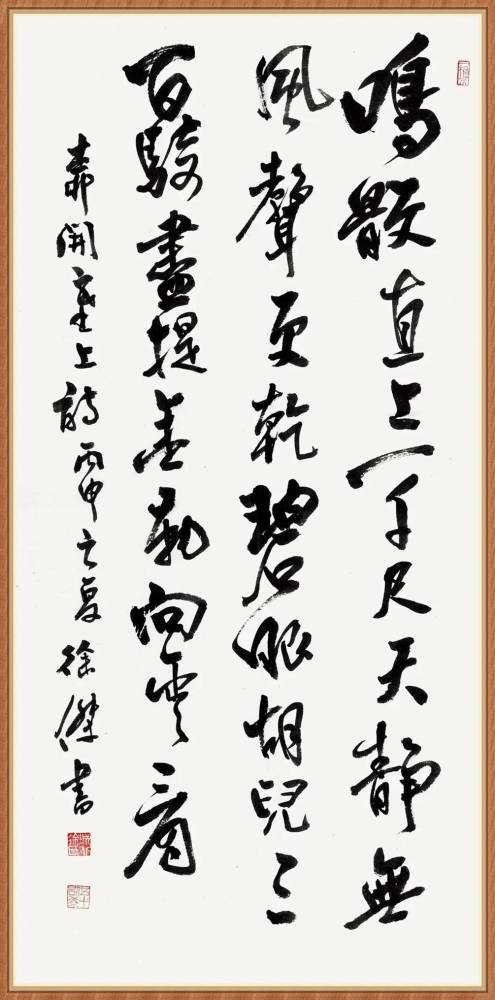 鳴骹直上一千尺天靜無
風聲更乾碧眼胡兒三
百駿盡提金勒向雲看
柳開塞上詩丙申之夏徐傑書